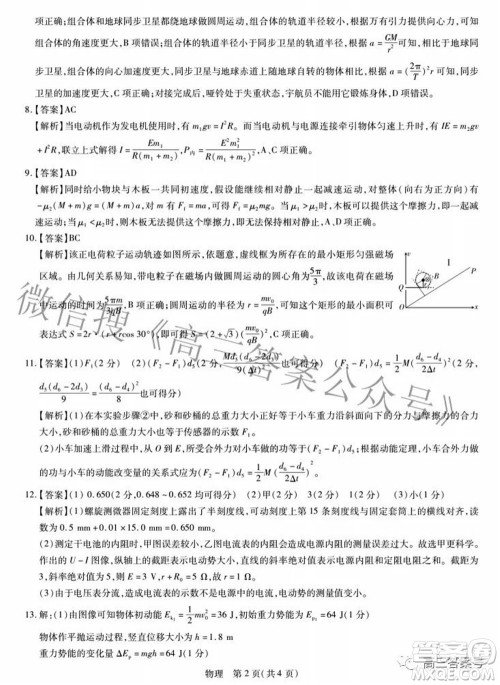 项正确;组合体和地球同步卫星都绕地球做圆周运动,组合体的轨道半径较小,根据其所受地球引力提供向心力,可知
组合体的角速度更大,B 项错误;组合体的轨道半径小于同步卫星的轨道半径,根据 a=GM/r² 可知,组合体的加速度大于
同步卫星的加速度,而同步卫星与地球赤道上随地球自转的物体相比,角速度相同,半径更大,根据 a=(2π/T)²r 可知,同步
卫星的加速度更大,C 项正确;对接完成后,哑铃处于失重状态,宇航员不能用它来锻炼身体,D 项错误。
8.【答案】AC
【解析】当电动机作为发电机使用时,有 m₁gv=I²R,当电动机与电源连接牵引物体匀速上升时,有 IE=m₂gv
+I²R,联立上式解得 I=Em₁/R(m₁+m₂),P内=E²m₁²/R(m₁+m₂)²,A、C 项正确。
9.【答案】AD
【解析】同时给小物块与木板一共同初速度,假设能继续相对静止一起减速运动,对整体(向右为正方向)有
-μ₂(M+m)g=(M+m)a,对小物块有 Ff=ma,解得 Ff=-μ₂mg,当 μ₁>μ₂ 时,木板可以提供这个摩擦力,即一起减
速运动;当 μ₁<μ₂ 时,则木板无法提供这个摩擦力,即无法保持相对静止,A、D 项正确。
10.【答案】BC
【解析】该正电荷粒子运动轨迹如图所示,依题意,虚线框为题目要求的最小矩形匀强磁场
区域。由几何关系易知,带电粒子在磁场内做圆周运动的圆心角为 5π/3,故该电荷在磁场
中运动的时间为 5πm/3qB,B 项正确;圆周运动的半径 r=mv₀/qB,可知这个矩形的最小面积可
表达式 S=2r×(r+rcos 30°),即 S=(2+√3)(mv₀/qB)²,C 项正确。
11.【答案】(1)F₁(2 分) (2)(F₂-F₁)d₅(2 分) Md₅(d₆-2d₃)/9(Δt)²(2 分) (F₂-F₁)d₅=1/2 M(d₆-d₄/2Δt)²(2 分,
d₅(d₆-2d₃)/9=(d₆-d₄)²/8 也可得分)
【解析】(1)在本实验步骤②中,砂和砂桶的总重力大小正好等于小车重力沿斜面向下的分力与摩擦力的合力
大小,砂和砂桶的总重力大小也等于传感器的示数 F₁。
(2)小车加速上滑过程中,从 O 点到打 5 点的过程中,小车合外力做的功为(F₂-F₁)d₅;小车合外力做
的功与小车的动能改变量的关系式应为(F₂-F₁)d₅=1/2 M(d₆-d₄/2Δt)²。
12.【答案】(1)0.650(2 分,0.648-0.652 均可得分) (2)甲(2 分) (3)2(2 分) (4)1(2 分)
【解析】(1)螺旋测微器固定刻度上露出了半刻度线,可动刻度上的第 15 条刻度线与固定套筒上的横线对齐,读数
为 0.5 mm+0.01×15.0 mm=0.650 mm。
(2)测定干电池的内阻时,甲图误差较小,乙图电流表的内阻会造成电源内阻的测量误差过大。故选甲。
(3)电源的 U-I 图像,纵截距为电源的电动势,斜率的绝对值为电源内阻和保护电阻之和,由图像可知纵截距为
3,斜率绝对值为 5,可得 E=3 V,r+R₀=5 Ω,电池组内阻为 2 Ω,每节电池的内阻为 1 Ω。
13.解:(1)由图像可知物体初动能 Ek₁=1/2 mv₀²=36 J,初始重力势能为 Ep₁=64 J(1 分)
物体作平抛运动的过程,竖直位移大小为 h(1 分)
重力势能的变化大小为 ΔEp=mgh=64 J(1 分)
物理 第 2 页(共 4 页)
高三答案号
微信搜《高三答案公众号》